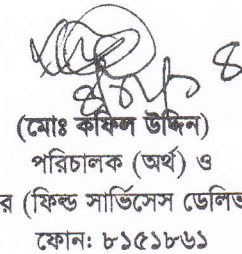 (মোঃ কফিল উদ্দিন)
পরিচালক (অর্থ) ও
র (ফিল্ড সার্ভিসেস ডেলিভ
ফোন: ৮১৫১৮৬১